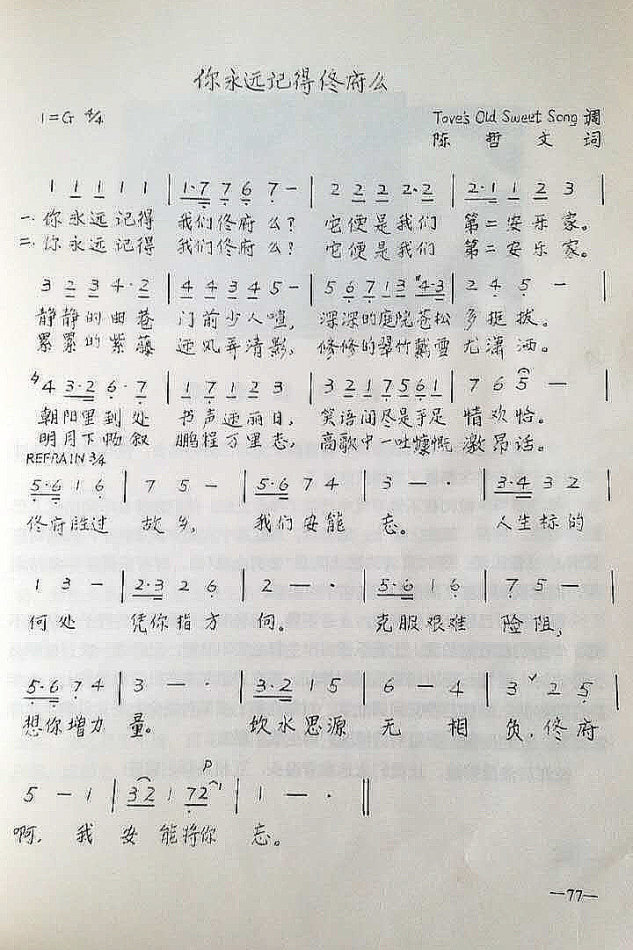 你永远记得佟府么
1=G 4/4 Tove's Old Sweet Song 调
陈哲文 词
1 1 1 1 1 | 1·7 7 6 7 - | 2 2 2 2·2 | 2·1 1 2 3 |
一.你永远记得 我们佟府么? 它便是我们 第二安乐家。
二.你永远记得 我们佟府么? 它便是我们 第二安乐家。
3 2 3 4·2 | 4 4 3 4 5 - | 5 6 7 1 3 #4·3 | 2 4 5 - |
静静的曲巷 门前少人喧, 深深的庭院苍松 多挺拔。
累累的紫藤 迎风弄清影, 修修的翠竹戴雪 尤潇洒。
4 3·2 6·7 | 1 7 1 2 3 | 3 2 1 7 5 6 1 | 7 6 5 - |
朝阳里到处 书声迎丽日, 笑语间尽是手足 情欢恰。
明月下畅叙 鹏程万里志, 高歌中一吐慷慨 激昂话。
REFRAIN 3/4
5·6 1 6 | 7 5 - | 5·6 7 4 | 3 - · | 3·4 3 2 |
佟府胜过 故乡, 我们安能 忘。 人生标的
1 3 - | 2·3 2 6 | 2 - · | 5·6 1 6 | 7 5 - |
何处 凭你指方 向。 克服艰难 险阻,
5·6 7 4 | 3 - · | 3·2 1 5 | 6 - 4 | 3 2 5 |
想你增力 量。 饮水思源 无 相 负,佟府
P
5 - 1 | 3 2 1 7 2 1 | 1 - · ||
啊, 我 安 能将你 忘。
—77—